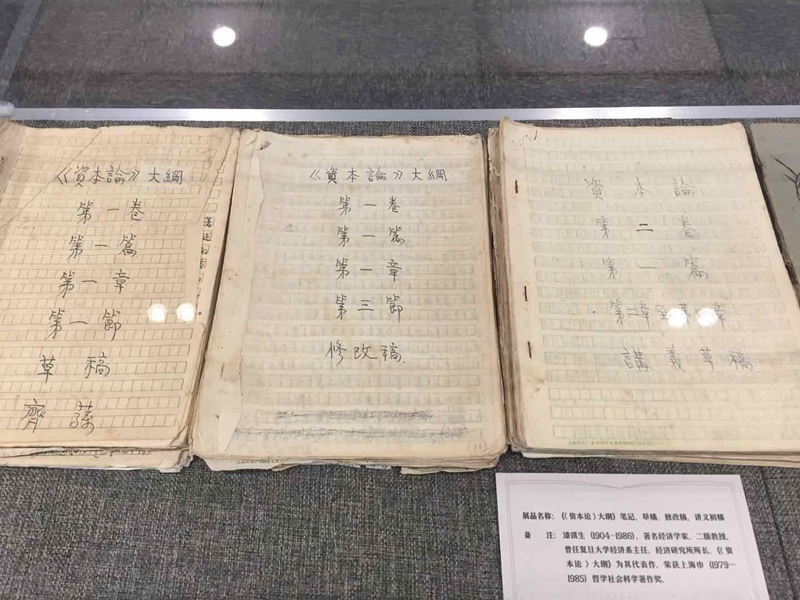 《資本論》大綱
第一卷
第一篇
第一章
第一節
草稿
《資本論》大綱
第一卷
第一篇
第一章
第三節
修改稿
資本論
第二卷
第一篇
講義草稿
展品名称：《〈资本论〉大纲》笔记、草稿、修改稿、讲义初稿
备 注：漆琪生（1904—1986），著名经济学家，二级教授，
曾任复旦大学经济系主任、经济研究所所长，《〈资
本论〉大纲》为其代表作，荣获上海市（1979—
1985）哲学社会科学著作奖。